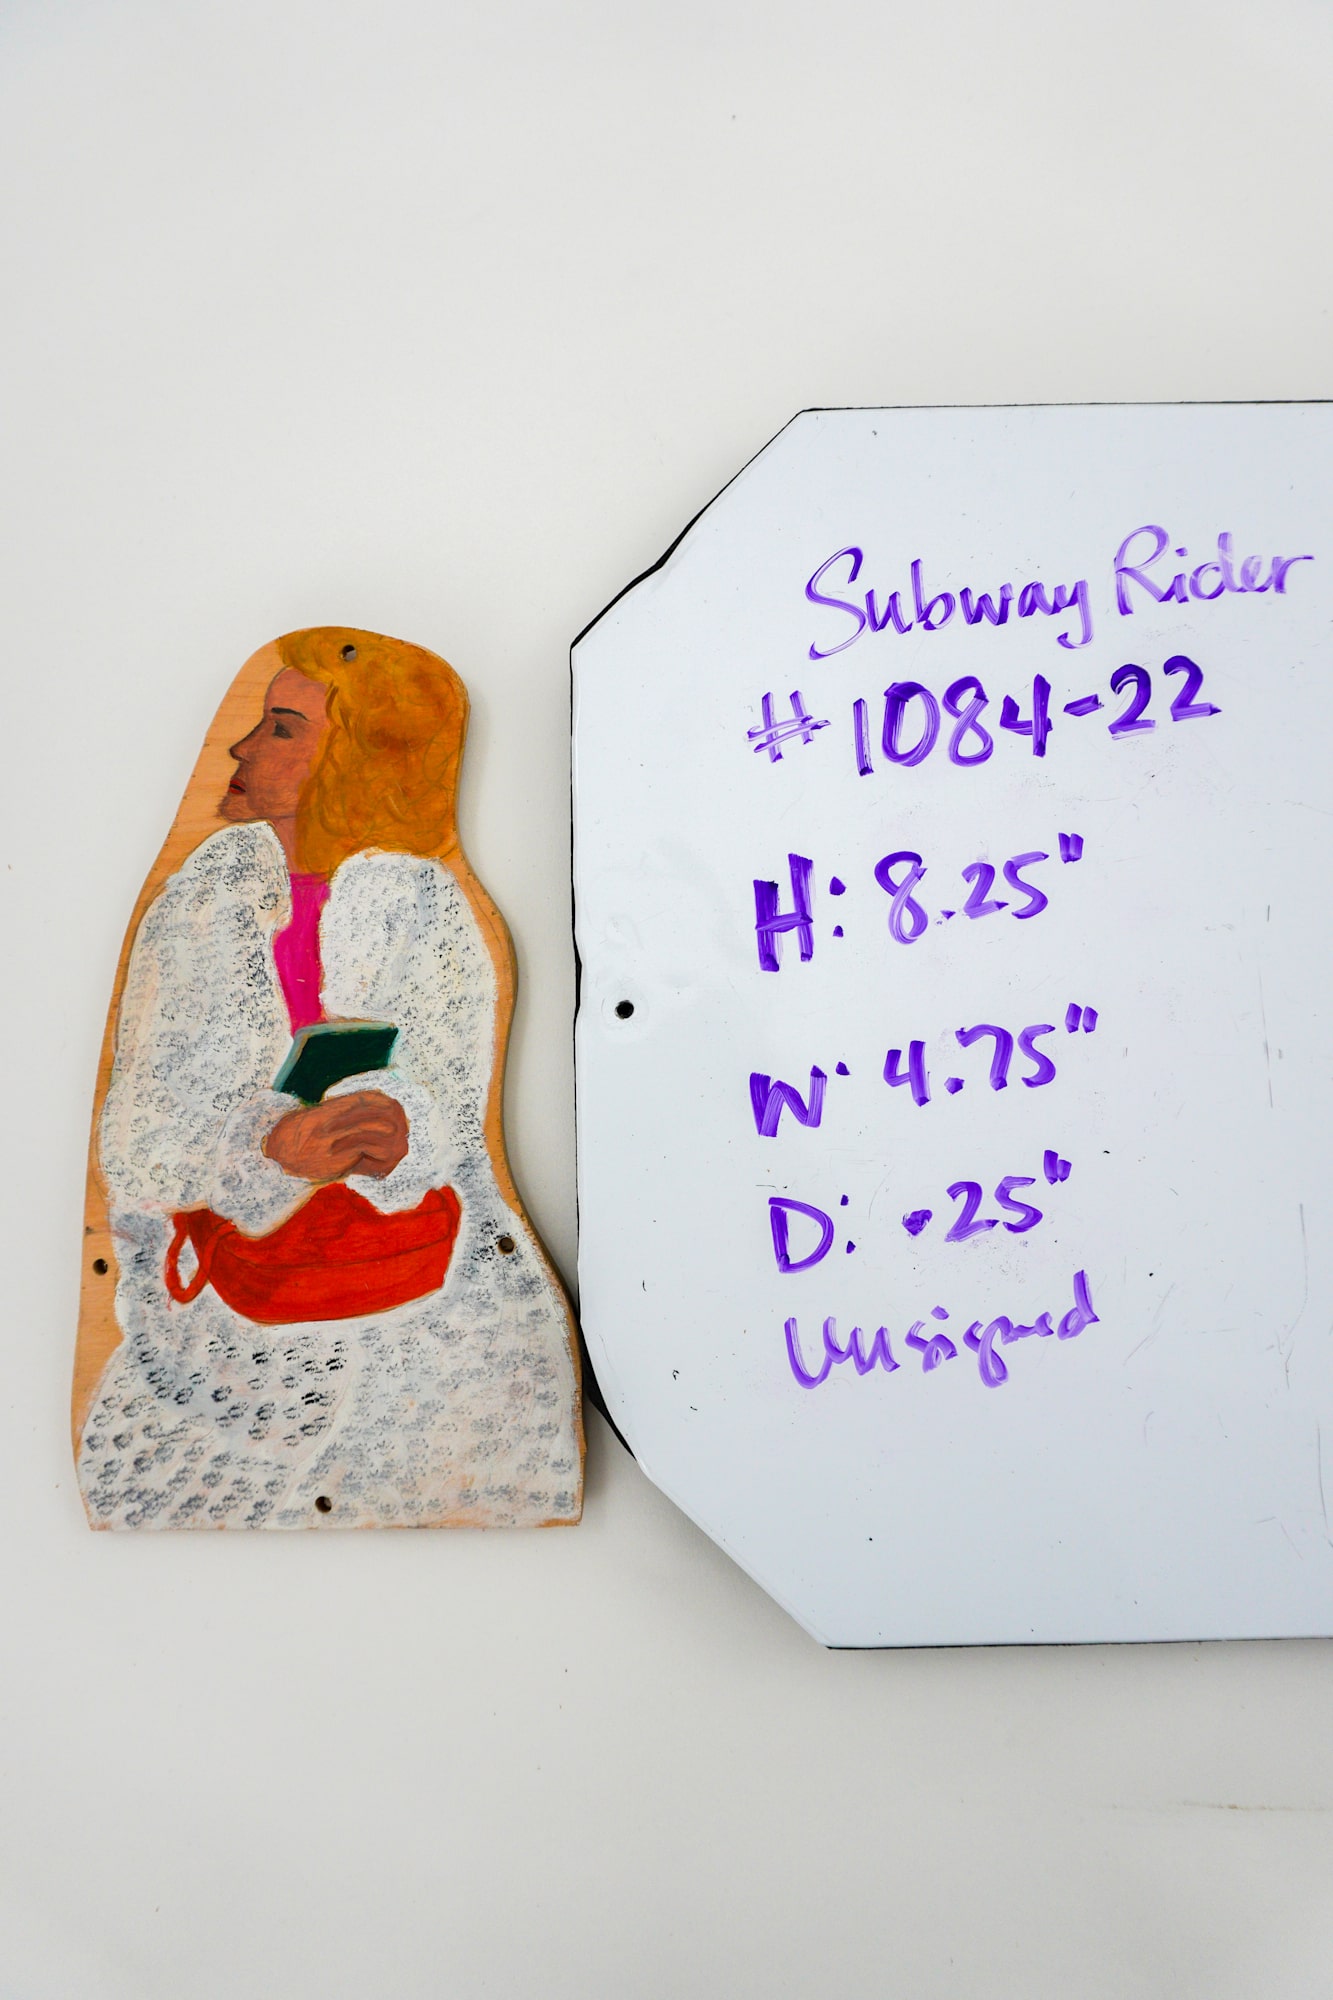 Subway Rider
# 1084-22
H: 8.25"
W: 4.75"
D: .25"
Unsigned